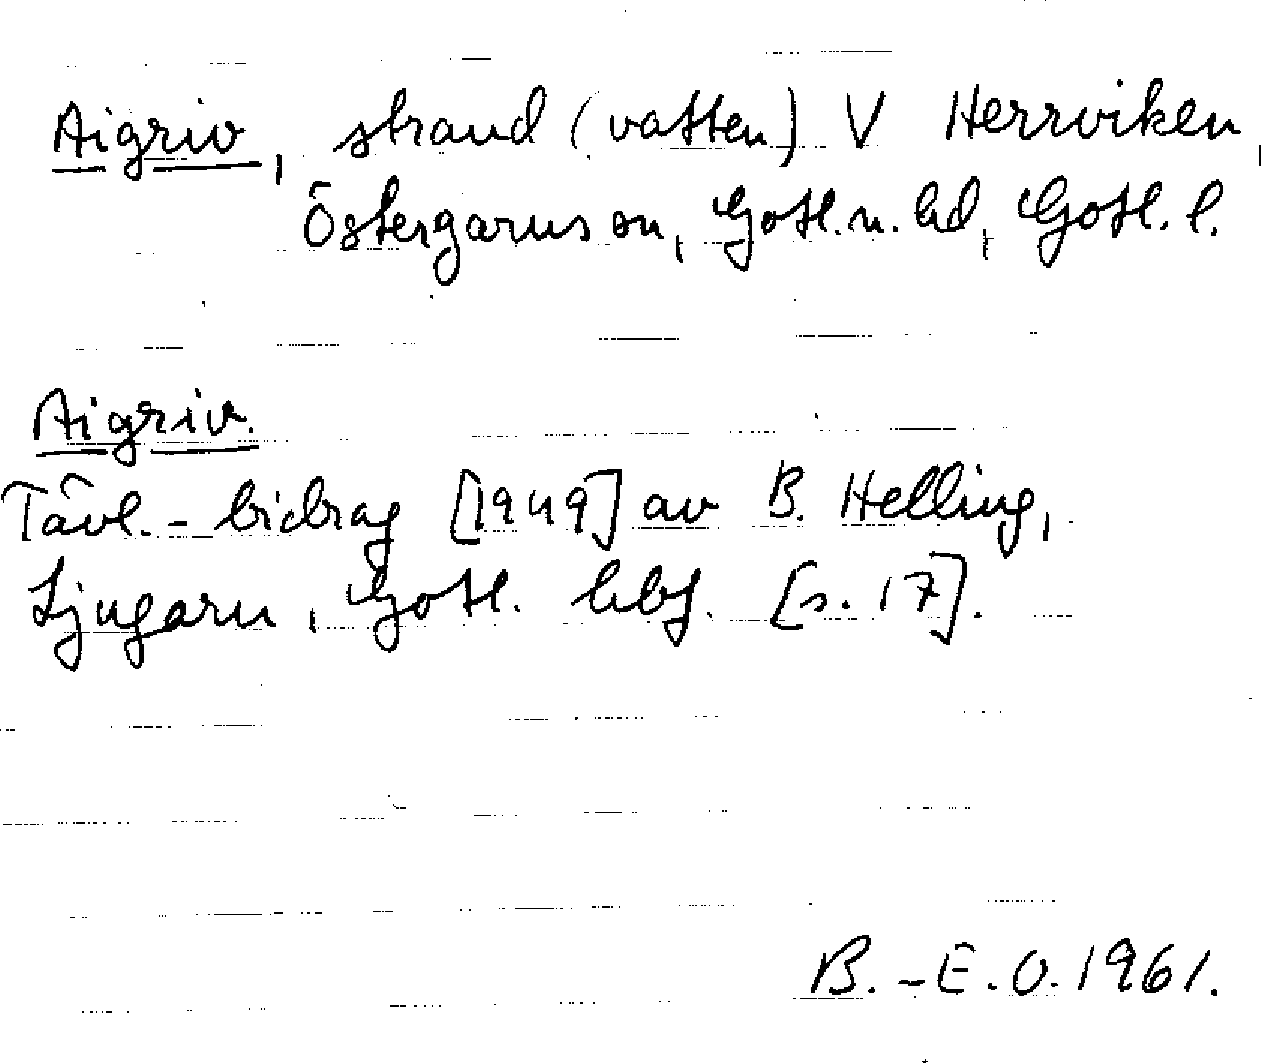 Aigriv, strand (vatten) V Herrviken,
Östergarns sn, Gotl. n. hd, Gotl. l.
Aigriv.
Tävl.-bidrag [1949] av B. Helling,
Ljugarn, Gotl. hbf. [s. 17].
B.-E. O. 1961.